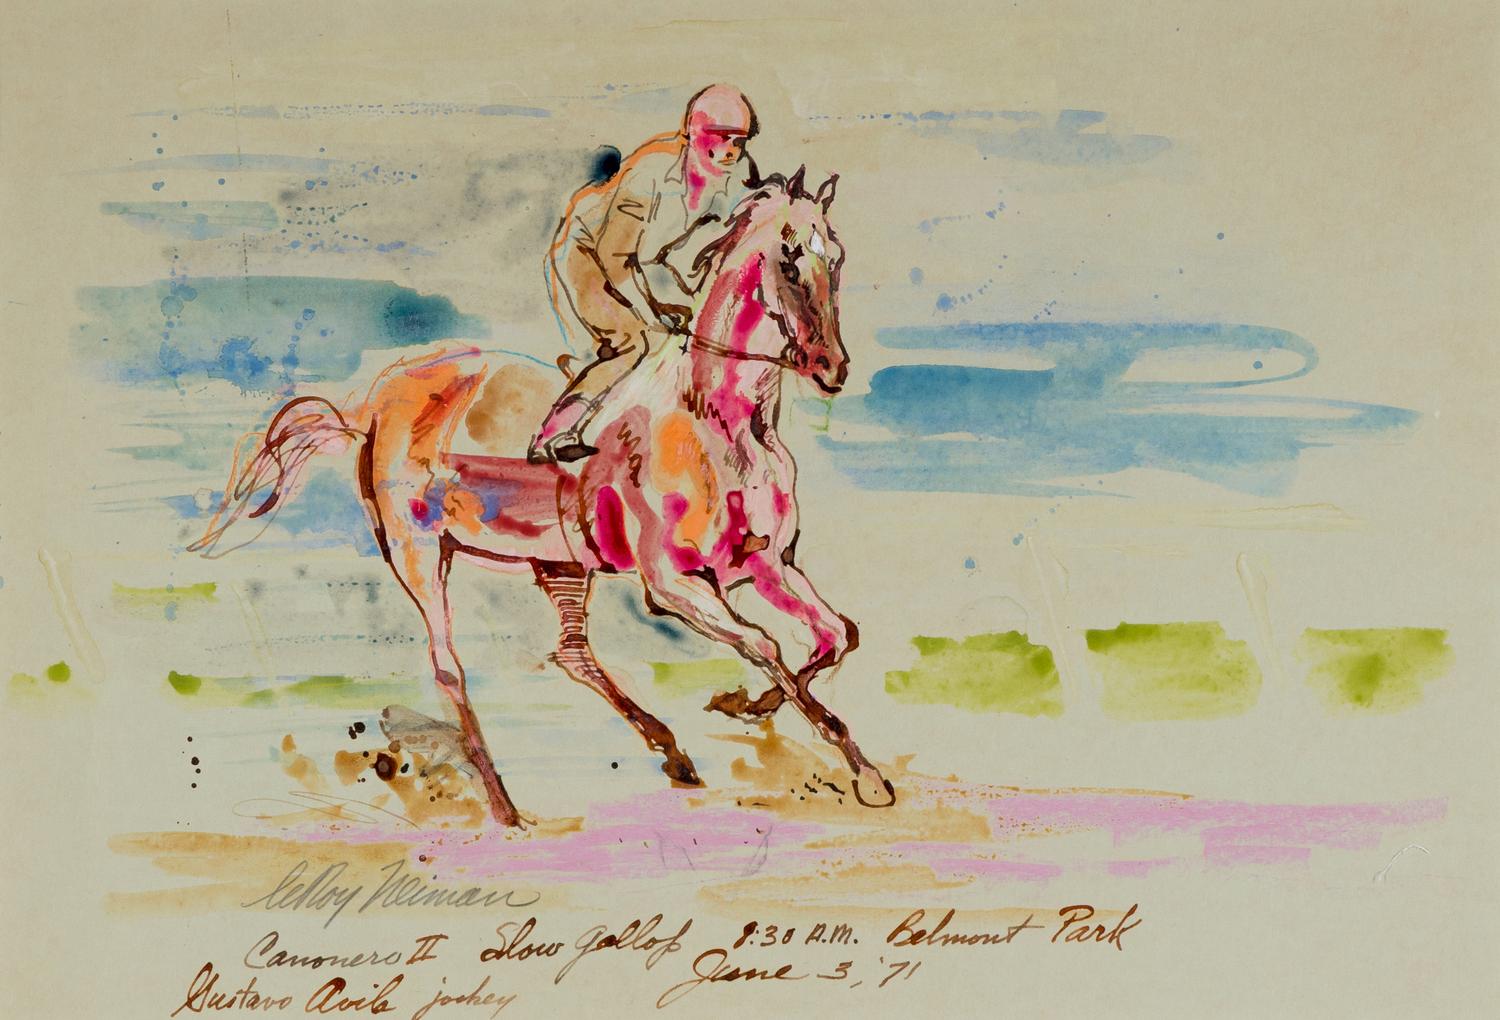 LeRoy Neiman
Canonero II Slow Gallop 8:30 A.M. Belmont Park
Gustavo Avila jockey June 3, '71